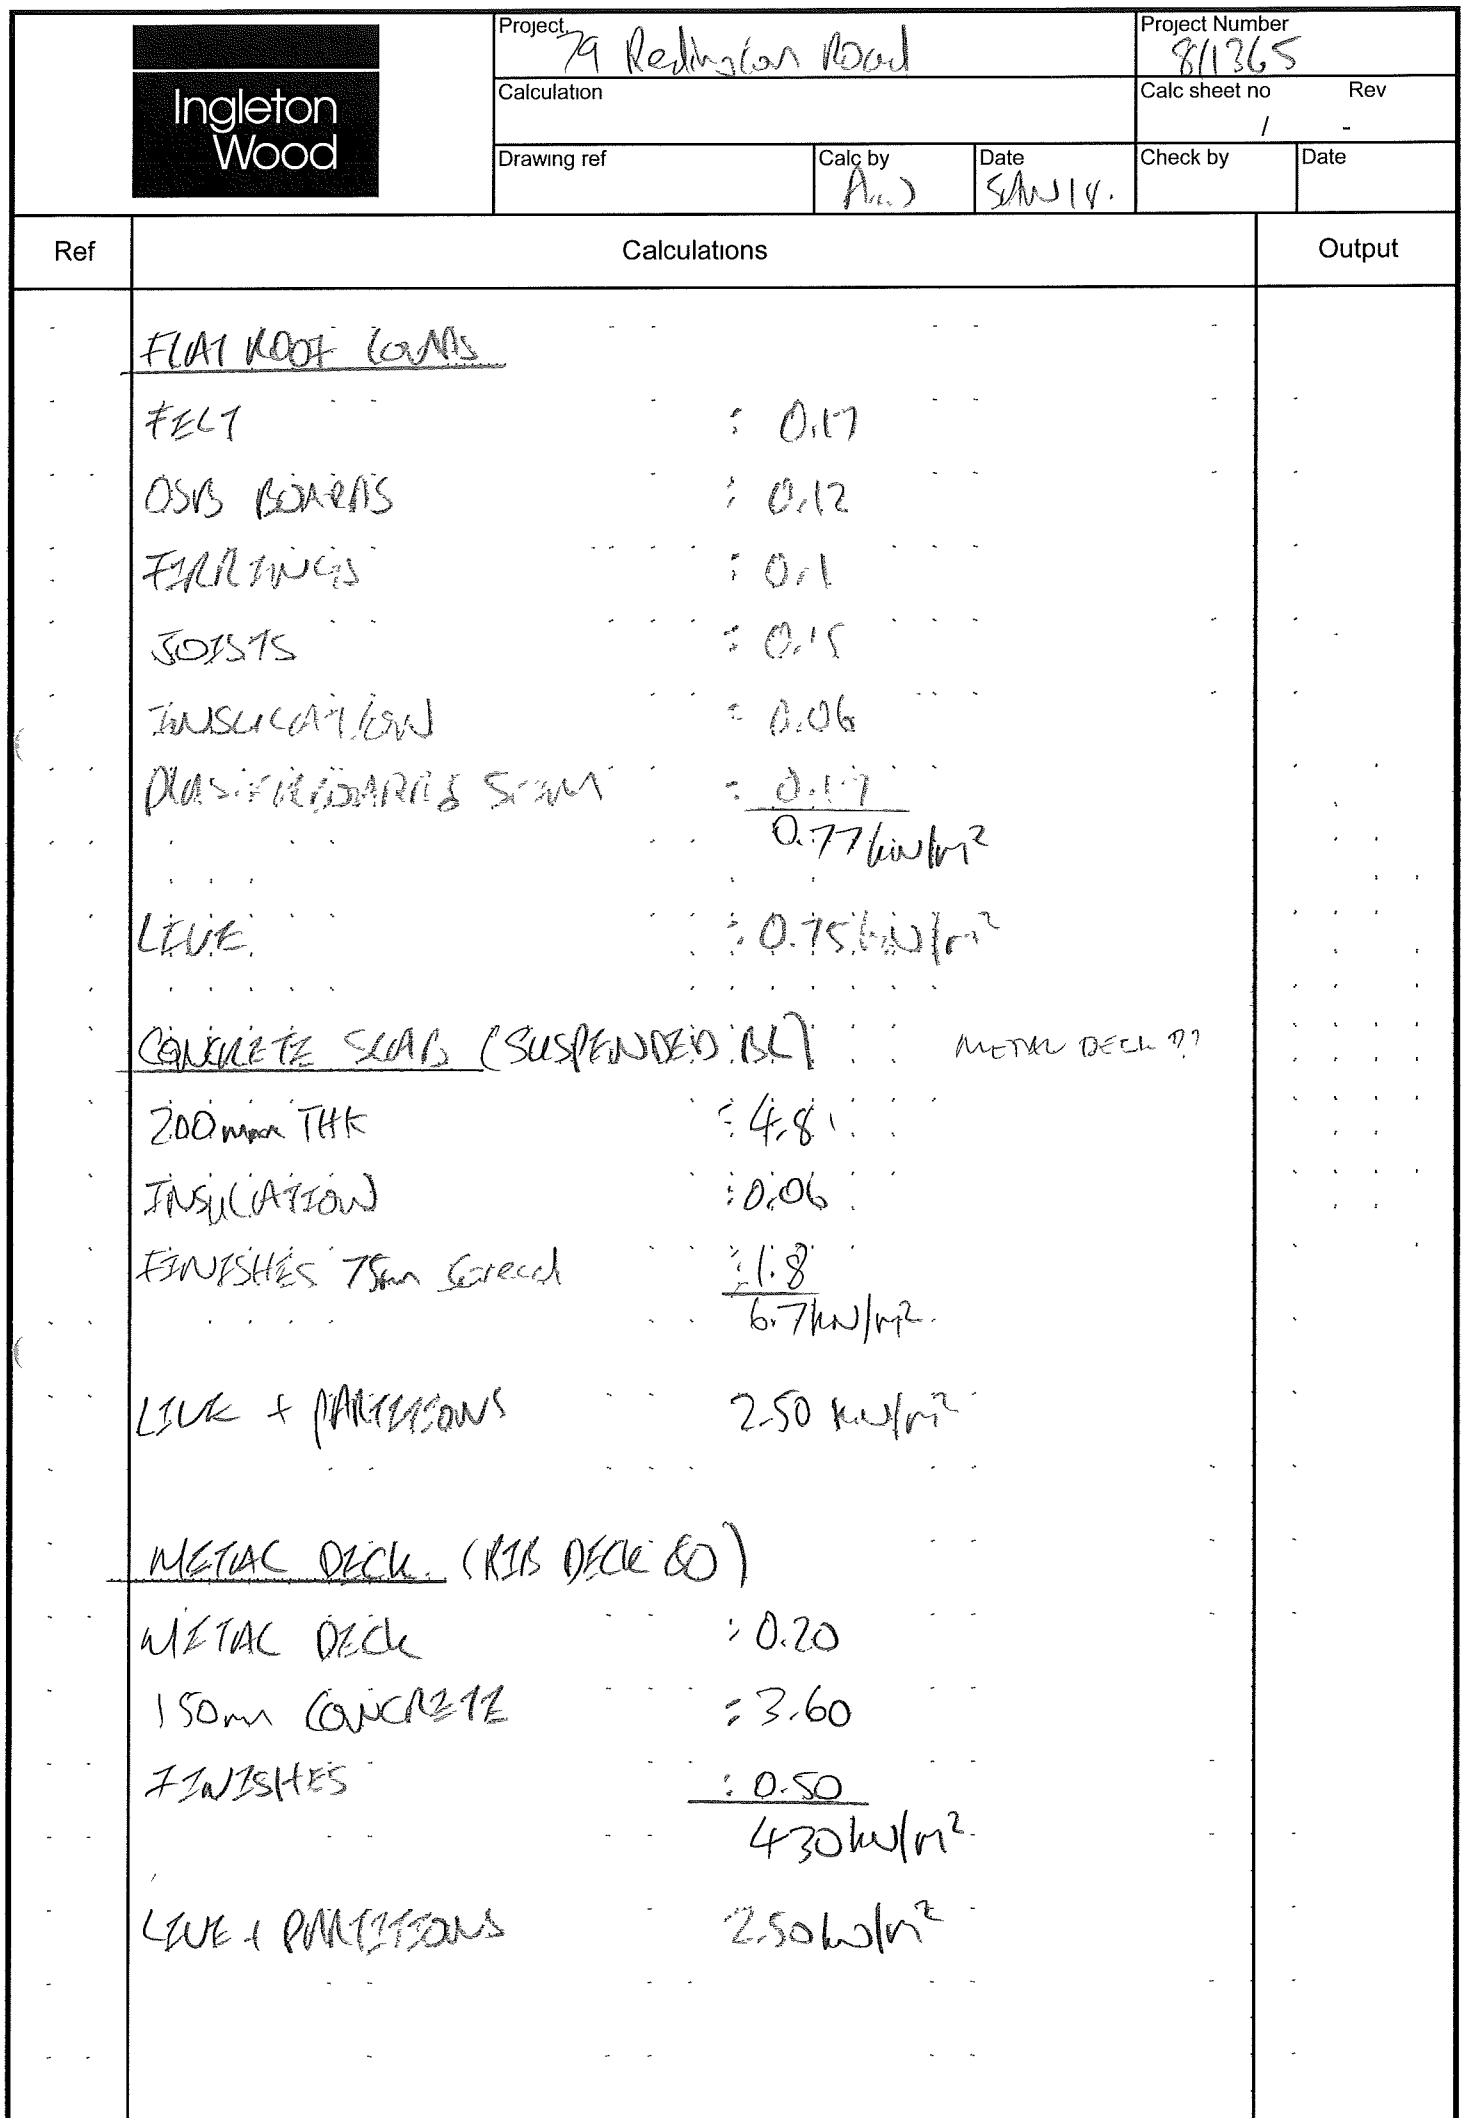 Ingleton
Wood
Project 79 Redington Road
Project Number 811365
Calculation
Calc sheet no / Rev -
Drawing ref
Calc by
Date JAN 14.
Check by
Date
Ref Calculations Output
FLAT ROOF LOADS
FELT : 0.17
OSB BOARDS : 0.12
FIRRINGS : 0.1
JOISTS : 0.15
INSULATION : 0.06
PLASTERBOARD & SKIM : 0.17
0.77 kN/m²
LIVE : 0.75 kN/m²
CONCRETE SLAB (SUSPENDED BL) METAL DECK ??
200mm THK : 4.8
INSULATION : 0.06
FINISHES 75mm Screed : 1.8
6.7 kN/m².
LIVE + PARTITIONS 2.50 kN/m²
METAL DECK. (RIB DECK 80)
METAL DECK : 0.20
150mm CONCRETE : 3.60
FINISHES : 0.50
4.30 kN/m².
LIVE + PARTITIONS 2.50 kN/m²